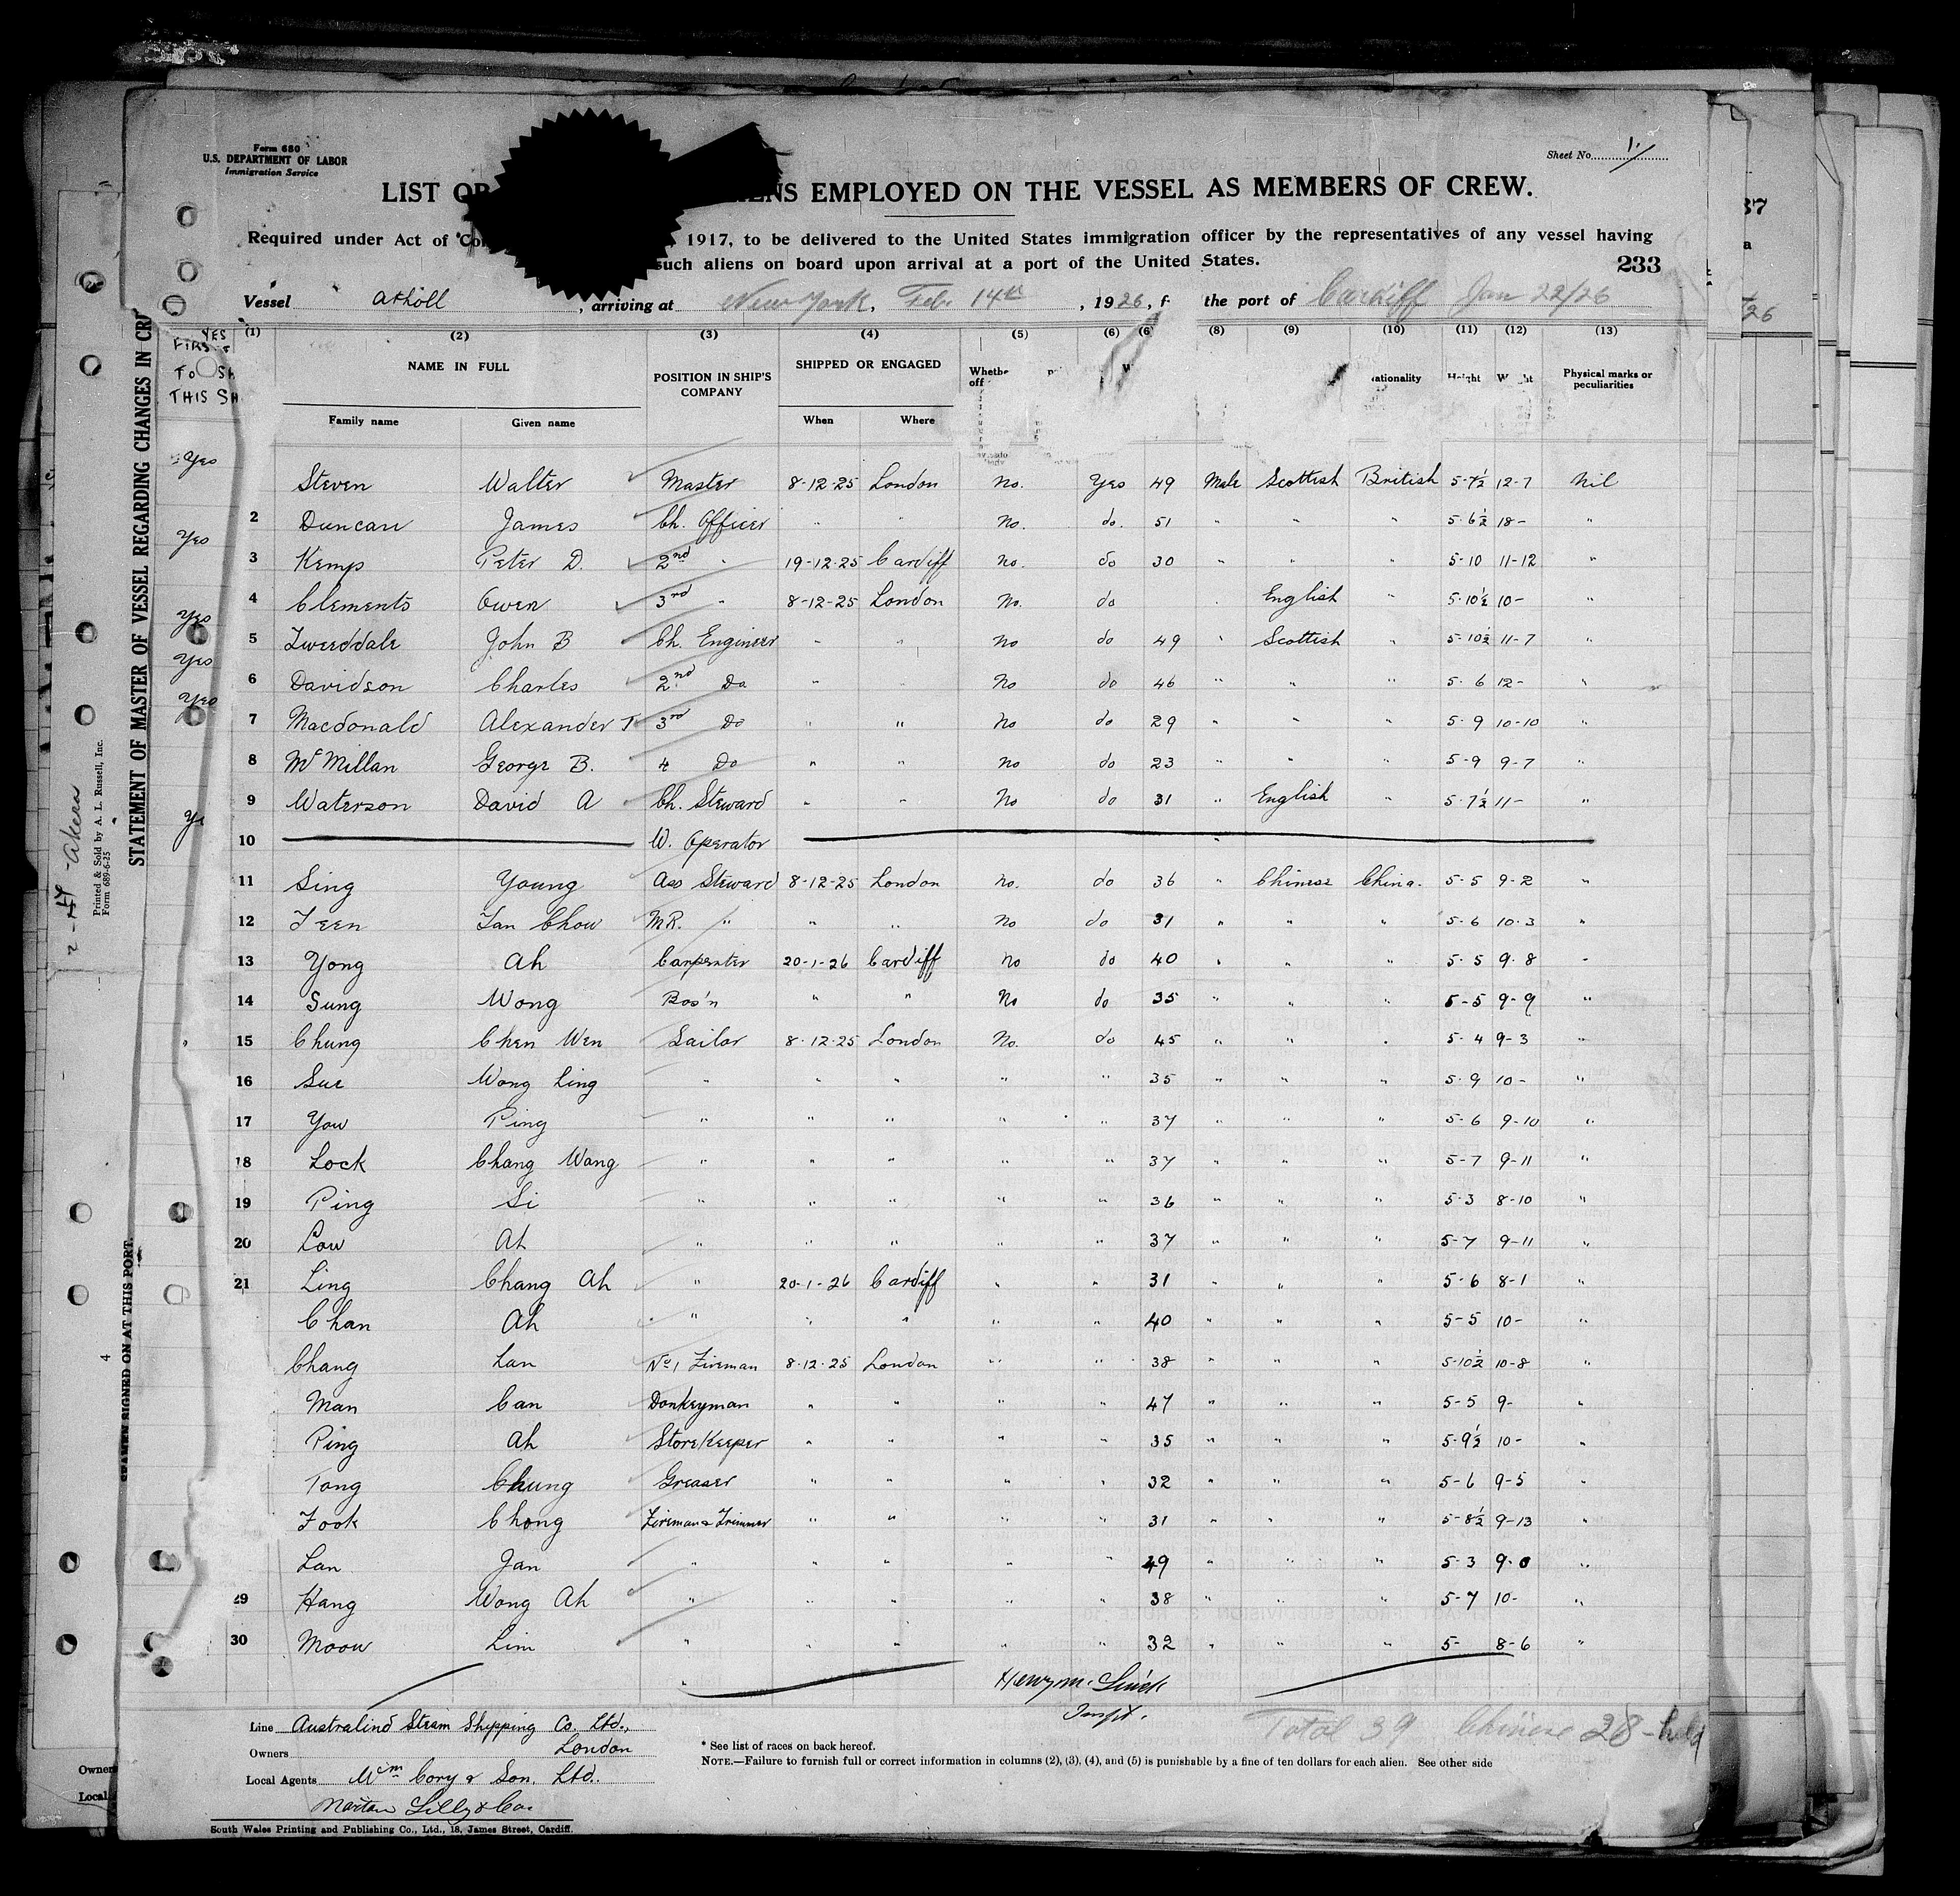 Form 680
U.S. DEPARTMENT OF LABOR
Immigration Service
Sheet No. 1.
LIST OR ALIENS EMPLOYED ON THE VESSEL AS MEMBERS OF CREW.
Required under Act of Con 1917, to be delivered to the United States immigration officer by the representatives of any vessel having
such aliens on board upon arrival at a port of the United States.
233
Vessel Atholl, arriving at New York, Feb. 14th, 1926, f the port of Cardiff Jan 22/26
(1) (2) (3) (4) (5) (6) (8) (9) (10) (11) (12) (13)
NAME IN FULL POSITION IN SHIP'S COMPANY SHIPPED OR ENGAGED Height Physical marks or peculiarities
Family name Given name When Where
Steven Walter Master 8-12-25 London No. Yes 49 Male Scottish British 5-7½ 12-7 Nil
2 Duncan James Ch. Officer " " No. do. 51 " " " 5-6½ 18- "
3 Kemp Peter D. 2nd " 19-12-25 Cardiff No. do 30 " " " 5-10 11-12 "
4 Clements Owen 3rd " 8-12-25 London No. do English " 5-10½ 10- "
5 Tweeddale John B Ch. Engineer " " No do 49 " Scottish " 5-10½ 11-7 "
6 Davidson Charles 2nd Do " " No do 46 " " " 5-6 12- "
7 Macdonald Alexander T 3rd Do " " No do 29 " " " 5-9 10-10 "
8 McMillan George B. 4 Do " " No do 23 " " " 5-9 9-7 "
9 Waterson David A Ch. Steward " " No do 31 " English " 5-7½ 11- "
10 W. Operator "
11 Sing Young Ass Steward 8-12-25 London No. do 36 " Chinese China. 5-5 9-2 "
12 Teen Tan Chow MR. " " " No do 31 " " " 5-6 10-3 "
13 Yong Ah Carpenter 20-1-26 Cardiff No do 40 " " " 5-5 9-8 "
14 Sung Wong Bos'n " " No do 35 " " " 5-5 9-9 "
15 Chung Chen Wen Sailor 8-12-25 London No. do 45 " " " 5-4 9-3 "
16 Sue Wong Ling " " " " " 35 " " " 5-9 10- "
17 You Ping " " " " " 37 " " " 5-6 9-10 "
18 Lock Chang Wang " " " " " 37 " " " 5-7 9-11 "
19 Ping Si " " " " " 36 " " " 5-3 8-10 "
20 Low Ah " " " " " 37 " " " 5-7 9-11 "
21 Ling Chang Ah " 20-1-26 Cardiff " " 31 " " " 5-6 8-1 "
Chan Ah " " " " " 40 " " " 5-5 10- "
Chang Lan No 1 Fireman 8-12-25 London " " 38 " " " 5-10½ 10-8 "
Man Can Donkeyman " " " " 47 " " " 5-5 9- "
Ping Ah StoreKeeper " " " " 35 " " " 5-9½ 10- "
Tong Chung Greaser " " " " 32 " " " 5-6 9-5 "
Fook Chong Fireman & Trimmer " " " " 31 " " " 5-8½ 9-13 "
Lan Jan " " " " " 49 " " " 5-3 9-0 "
29 Hang Wong Ah " " " " " 38 " " " 5-7 10- "
30 Moow Lim " " " " " 32 " " " 5- 8-6 "
Inspt.
Total 39 Chinese 28 - held
Line Australind Steam Shipping Co. Ltd.,
Owners London
Local Agents Wm Cory & Son, Ltd.
* See list of races on back hereof.
NOTE.—Failure to furnish full or correct information in columns (2), (3), (4), and (5) is punishable by a fine of ten dollars for each alien. See other side
South Wales Printing and Publishing Co., Ltd., 18, James Street, Cardiff.
STATEMENT OF MASTER OF VESSEL REGARDING CHANGES IN CR
SEAMEN SIGNED ON AT THIS PORT.
Printed & Sold by A. L. Russell, Inc.
Form 689-6-25
YES
FIRST
TO SH
THIS SH
Yes
Yes
Yes
Yes
Yes
4
Owner
Local
37
26